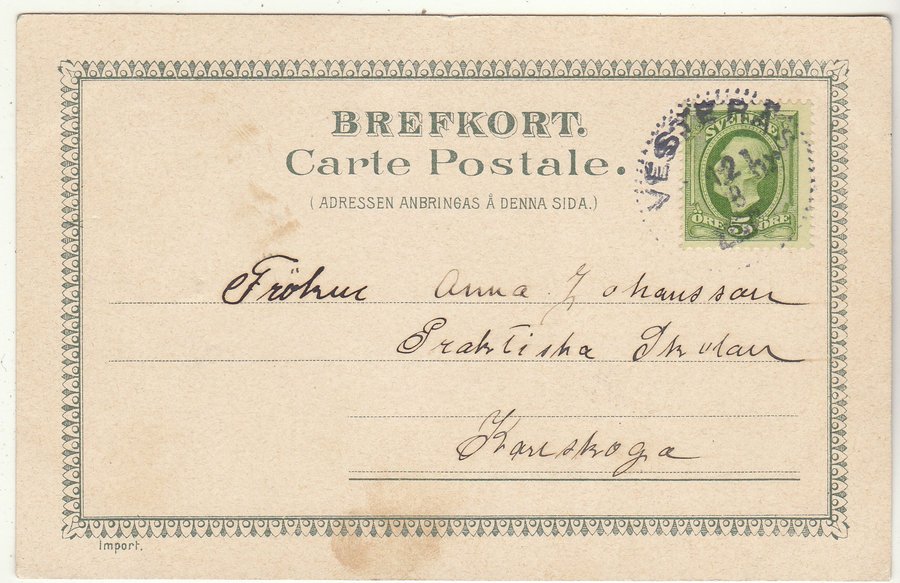 BREFKORT.
Carte Postale.
(ADRESSEN ANBRINGAS Å DENNA SIDA.)
SVERIGE
5
ÖRE ÖRE
Fröken Anna Johansson
Praktiska Skolan
Karlskoga
Import.